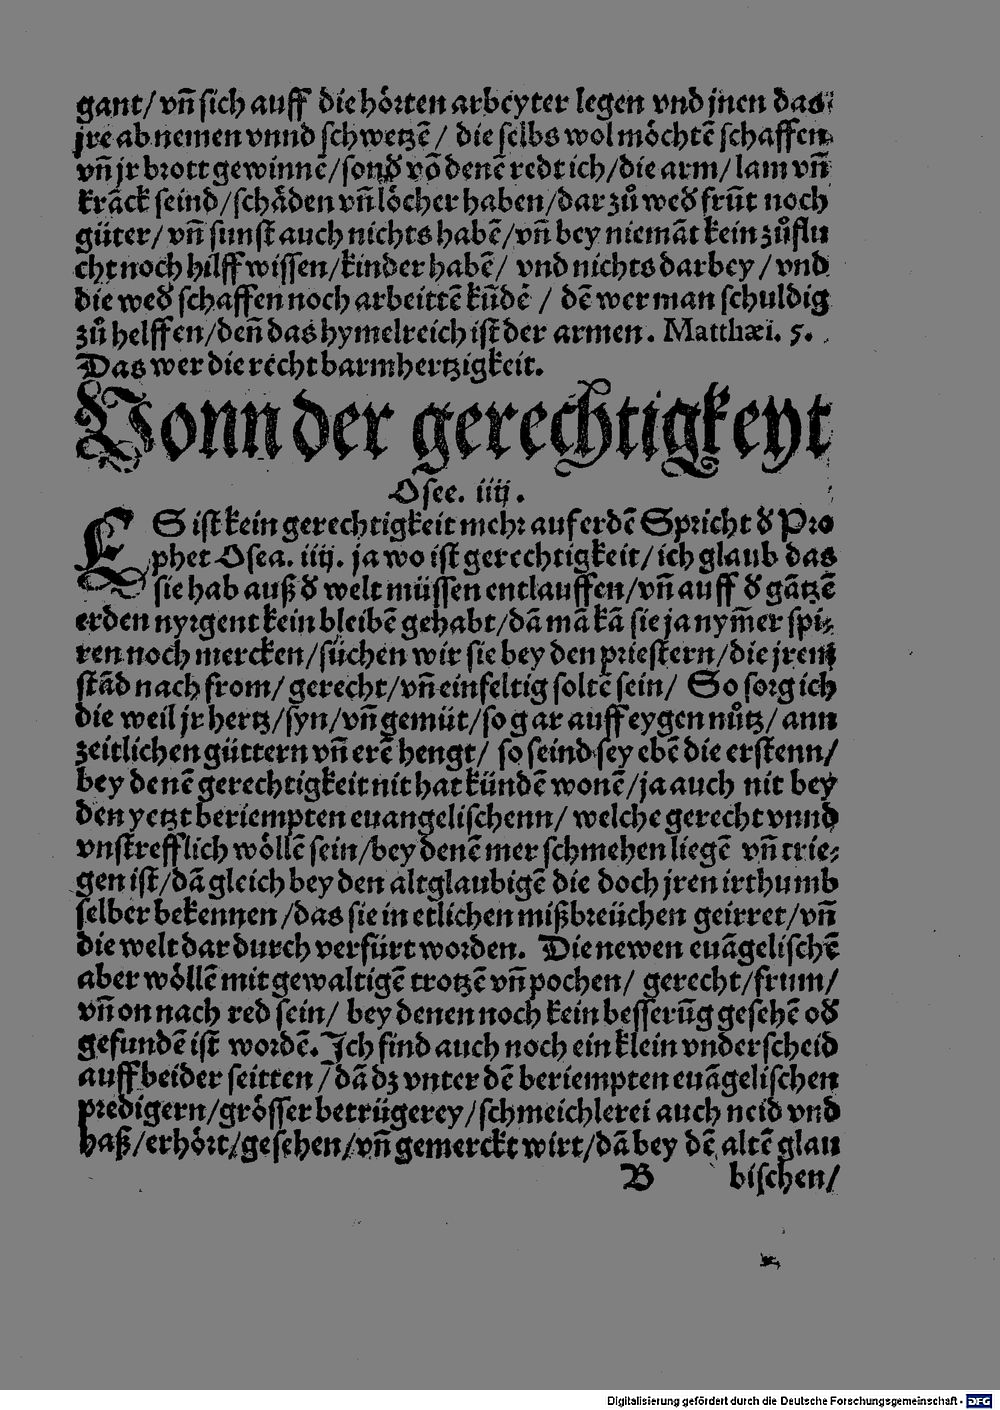 gant/ vñ sich auff die hörten arbeyter legen vnd jnen das
jre ab nemen vnnd schwetzẽ/ die selbs wol möchtẽ schaffen
vñ jr brott gewinnẽ/ sonď võ denẽ redt ich/ die arm/ lam vñ
krãck seind/ schåden vñ löcher haben/ dar zů weď frũt noch
güter/ vñ sunst auch nichts habẽ/ vñ bey niemãt kein zůflu
cht noch hilff wissen/ kinder habẽ/ vnd nichts darbey/ vnd
die weď schaffen noch arbeittẽ kũdẽ/ dẽ wer man schuldig
zů helffen/ deñ das hymelreich ist der armen. Matthæi. 5.
Das wer die recht barmhertzigkeit.
Vonn der gerechtigkeyt
Osee. iiij.
ES ist kein gerechtigkeit mehr auf erdẽ Spricht ď Pro
phet Osea. iiij. ja wo ist gerechtigkeit/ ich glaub das
sie hab auß ď welt müssen entlauffen/ vñ auff ď gãtzẽ
erden nyrgent kein bleibẽ gehabt/ dã mã kã sie ja nym̃er spi⸗
ren noch mercken/ süchen wir sie bey den priestern/ die jrem
stãd nach from/ gerecht/ vñ einfeltig soltẽ sein/ So sorg ich
die weil jr hertz/ syn/ vñ gemüt/ so gar auff eygen nůtz/ ann
zeitlichen güttern vñ erẽ hengt/ so seind sey ebẽ die erstenn/
bey denẽ gerechtigkeit nit hat kündẽ wonẽ/ ja auch nit bey
den yetzt beriempten euangelischenn/ welche gerecht vnnd
vnstrefflich wöllẽ sein/ bey denẽ mer schmehen liegẽ vñ trie⸗
gen ist/ dã gleich bey den altglaubigẽ die doch jren irthumb
selber bekennen/ das sie in etlichen mißbreüchen geirret/ vñ
die welt dar durch verfürt worden. Die newen euãgelischẽ
aber wöllẽ mit gewaltigẽ trotzẽ vñ pochen/ gerecht/ frum/
vñ on nach red sein/ bey denen noch kein besserũg gesehẽ oď
gefundẽ ist wordẽ. Ich find auch noch ein klein vnderscheid
auff beider seitten/ dã dz vnter dẽ beriempten euãgelischen
predigern/ grösser betrügerey/ schmeichlerei auch neid vnd
haß/ erhört/ gesehen/ vñ gemerckt wirt/ dã bey dẽ altẽ glau
B bischen/
Digitalisierung gefördert durch die Deutsche Forschungsgemeinschaft - DFG